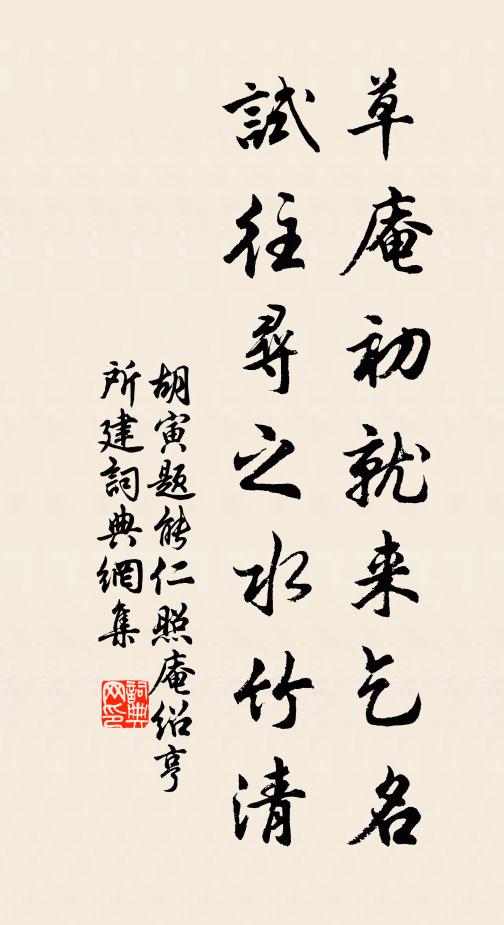 草庵初就来乞名
試往尋之水竹清
胡寅题能仁照庵绍亨
所建詞典網集
詞典网印